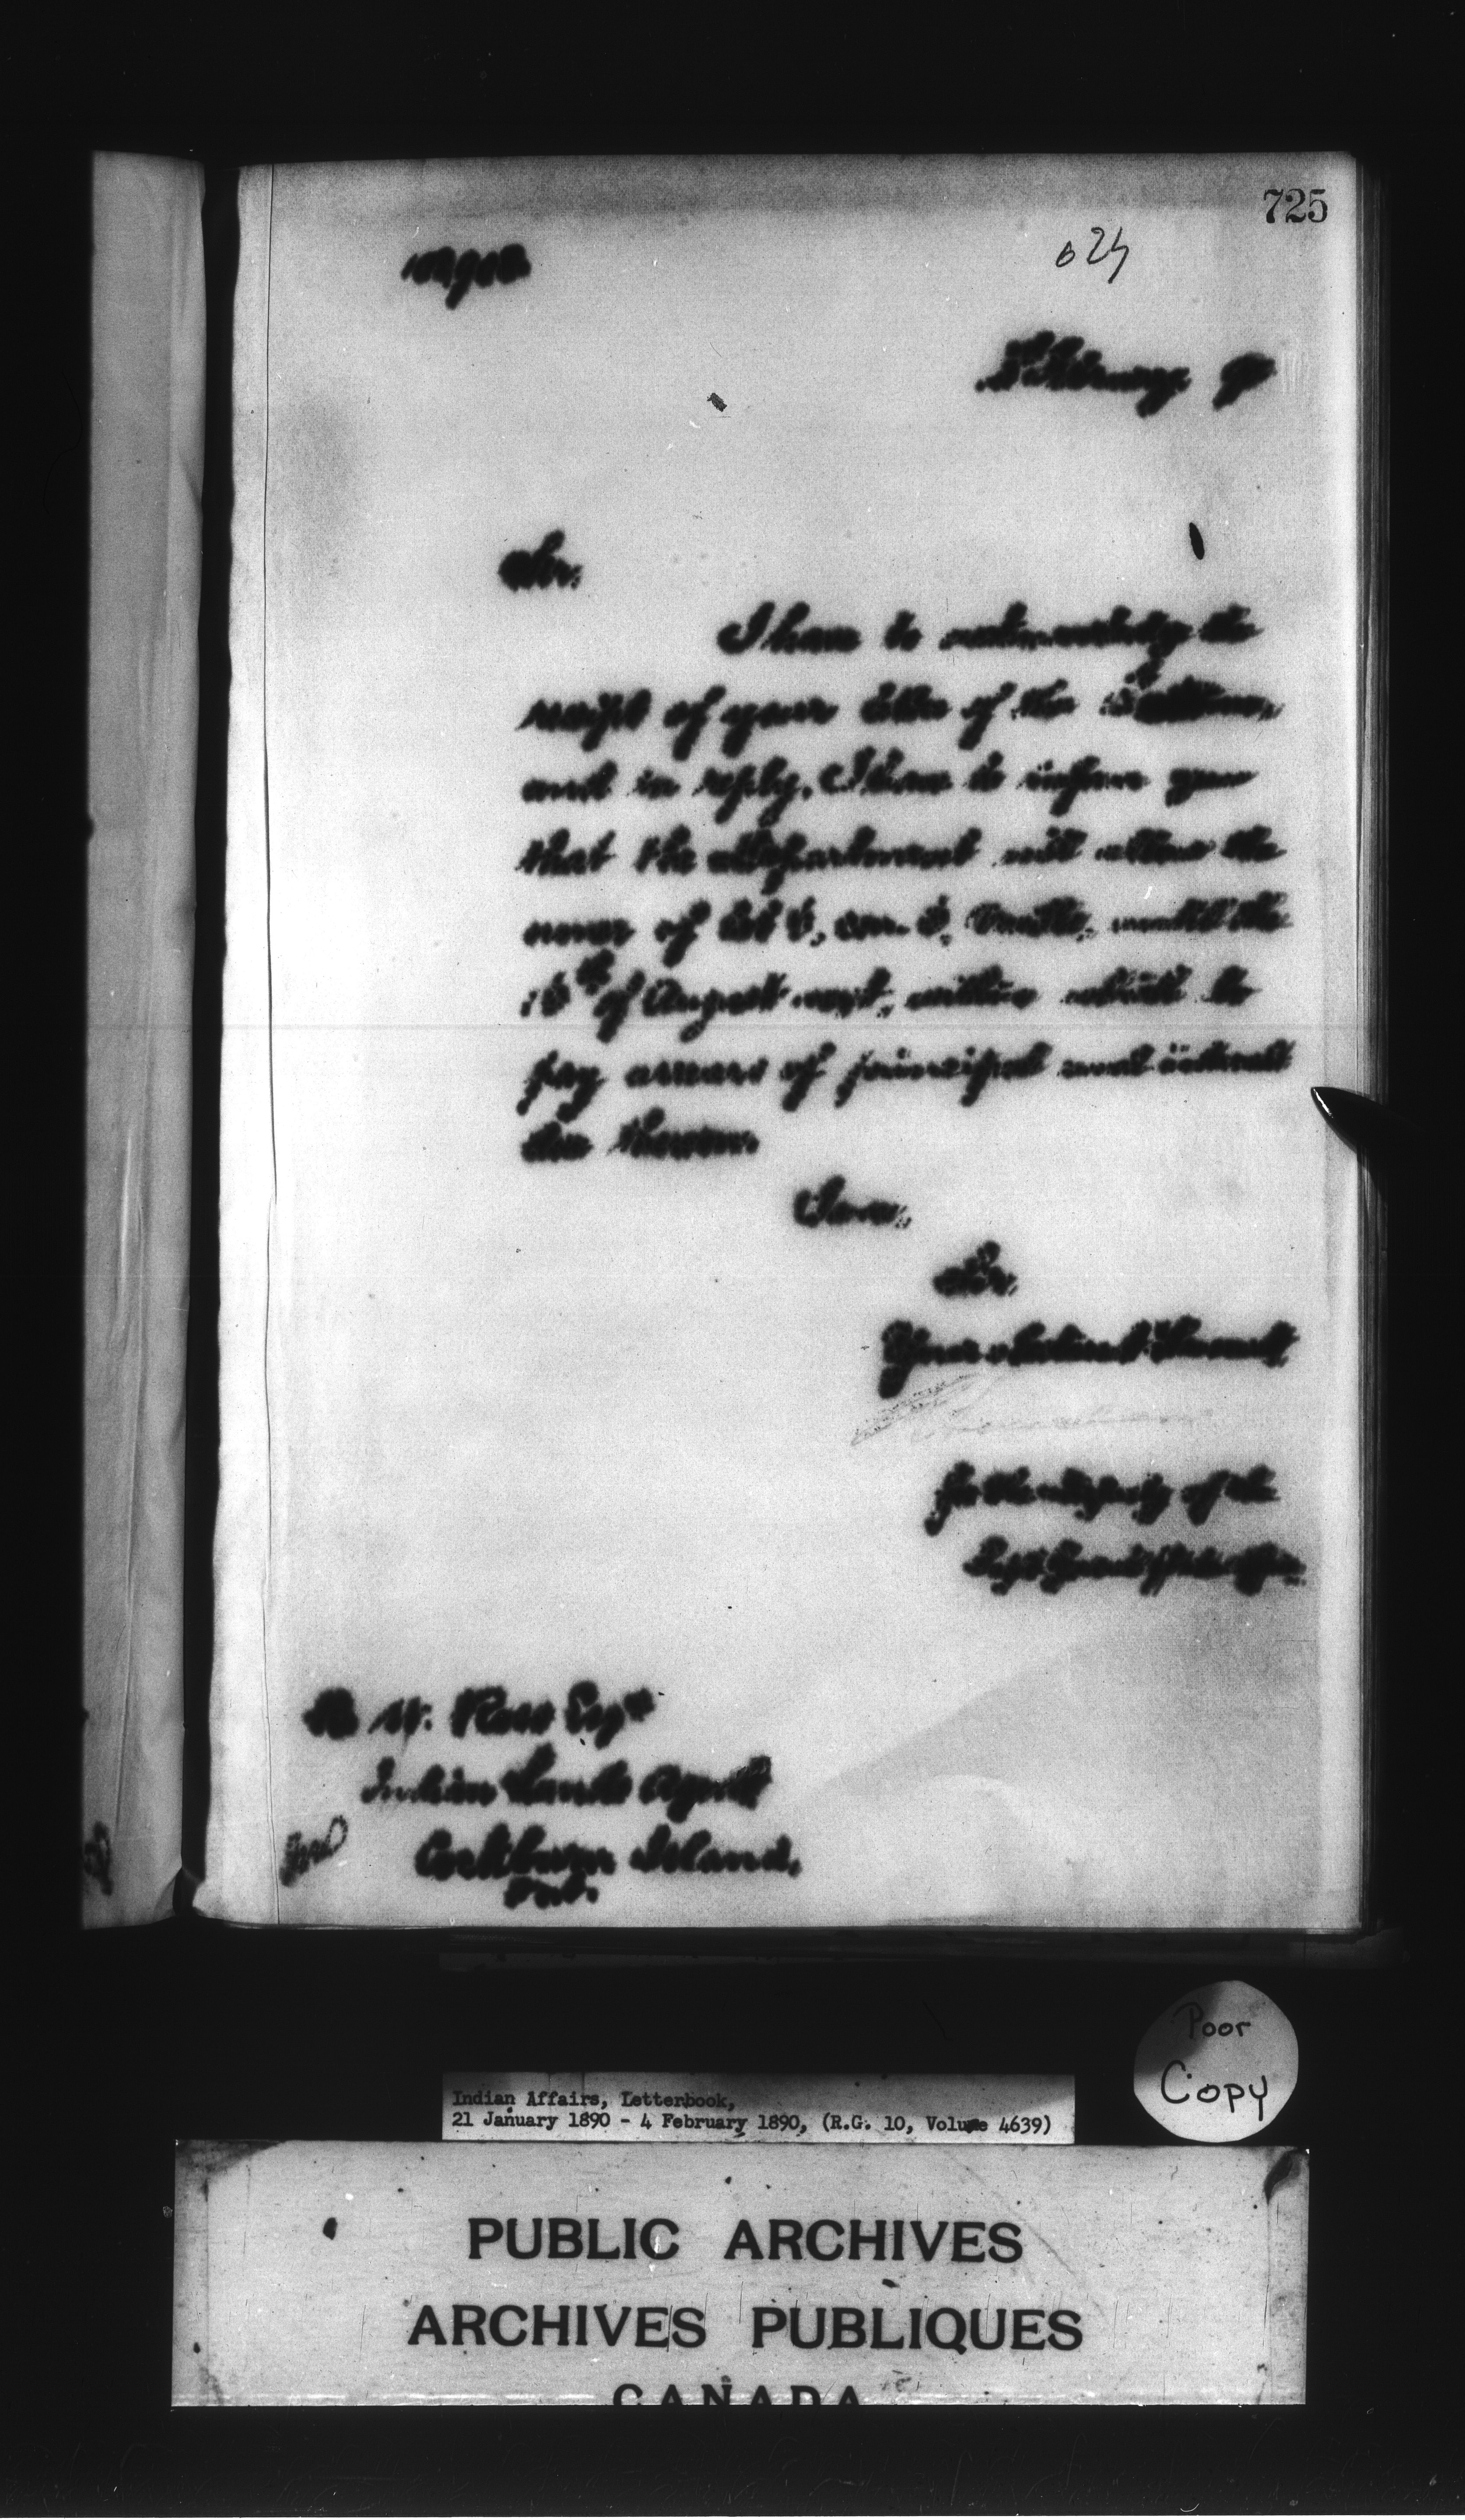 725
024
February
Sir,
I have to acknowledge the
receipt of your letter of the
and in reply, I have to inform you
that the Department will allow the
owner of Lot 6, con. 6, until the
15th of August next, within which to
pay arrears of principal and interest
due thereon.
I am,
Sir,
Your obedient Servant,
for the Deputy of the
Supt. General of
R. W. Ross Esqre
Indian Lands Agent
Cockburn Island,
Ont.
Poor
Copy
Indian Affairs, Letterbook,
21 January 1890 - 4 February 1890, (R.G. 10, Volume 4639)
PUBLIC ARCHIVES
ARCHIVES PUBLIQUES
CANADA